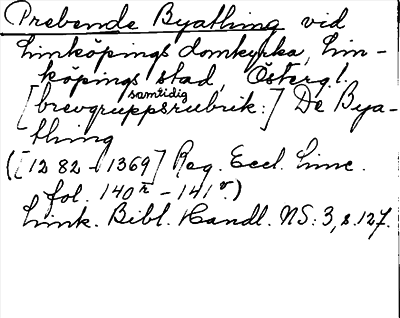 Prebende Byathing vid
Linköpings domkyrka, Lin-
köpings stad, Österg. l.
[samtidig
brevgruppsrubrik:] De Bya-
thing
([1282-1369] Reg. Eccl. Linc.
fol. 140r - 141v.)
Link. Bibl. Handl. NS: 3, s. 127.